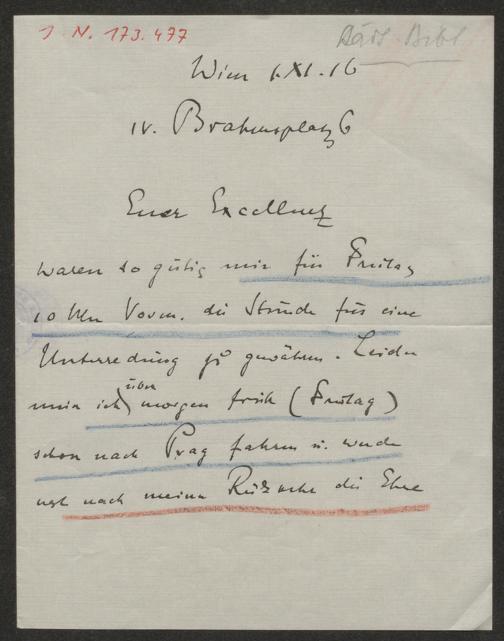 J. N. 173.477
Bibl
Wien 1.XI.16
IV. Brahmsplatz 6
Euer Excellenz
waren so gütig mir für Freitag
10 Uhr Vorm. die Stunde für eine
Unterredung zu gewähren. Leider
muss ich über morgen früh (Freitag)
schon nach Prag fahren u. werde
erst nach meiner Rückkehr die Ehre